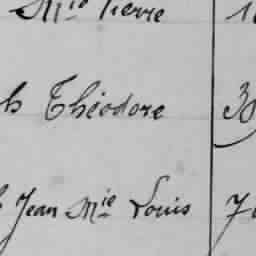 Mie Pierre
h Théodore 3
Jean Mie Louis 7